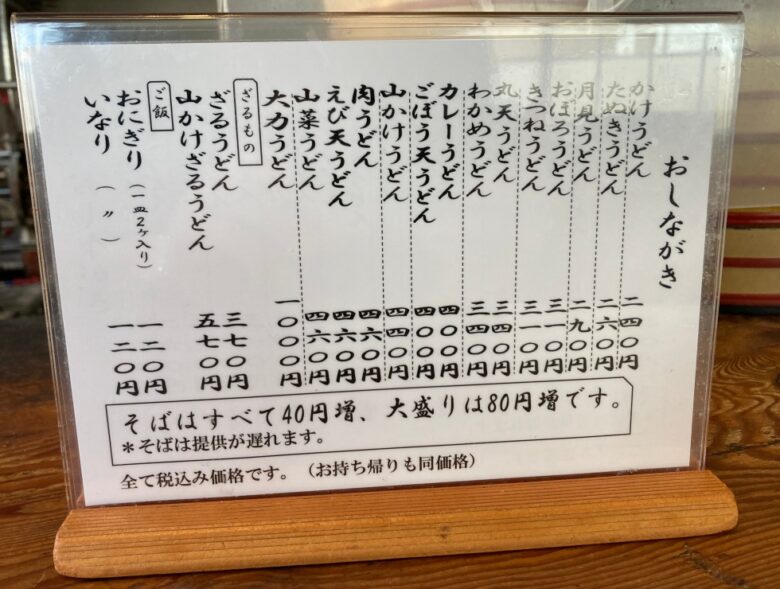 おしながき
かけうどん 二四〇円
たぬきうどん 二六〇円
月見うどん 二九〇円
おぼろうどん 三一〇円
きつねうどん 三一〇円
丸天うどん 三四〇円
わかめうどん 三四〇円
カレーうどん 四〇〇円
ごぼう天うどん 四〇〇円
山かけうどん 四四〇円
肉うどん 四六〇円
えび天うどん 四六〇円
山菜うどん 四六〇円
大力うどん 一〇〇〇円
ざるもの
ざるうどん 三七〇円
山かけざるうどん 五七〇円
ご飯
おにぎり(一皿2ヶ入り) 一二〇円
いなり(〃) 一二〇円
そばはすべて40円増、大盛りは80円増です。
＊そばは提供が遅れます。
全て税込み価格です。(お持ち帰りも同価格)